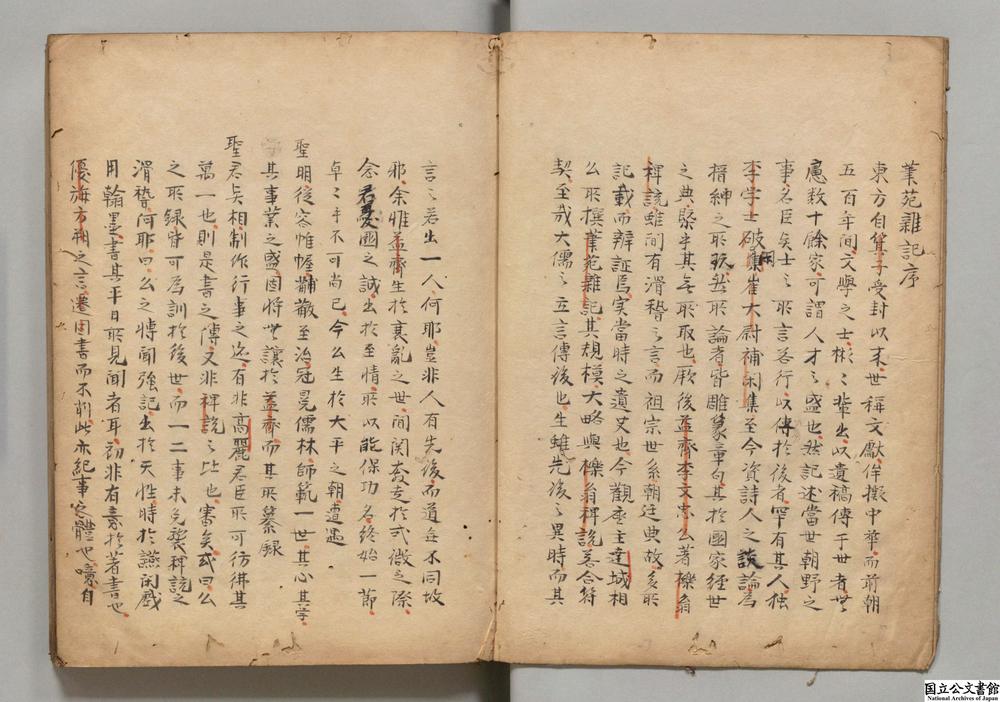 筆苑雜記序
東方自箕子受封以来世稱文獻侔擬中華而前朝
五百年間文學之士彬〻輩出以遺稿傳于世者世
慮數十餘家可謂人才之盛也然記述當世朝野之
事名臣矣士之所言若行以傳於後者罕有其人独
李学士破閑集崔大尉補閑集至今資詩人之談論為
搢紳之所玩然所論者皆雕篆章句其於國家経世
之典槩乎其無所取也厥後益齋李文忠公著櫟翁
稗説雖間有滑稽之言而祖宗世系朝廷典故多所
記載而辯証焉実當時之遺史也今觀座主達城相
公所撰筆苑雜記其規模大略與櫟翁稗説若合符
契至哉大儒之立言傳後也生雖先後之異時而其
言之若出一人何耶豈非人有先後而道無不同故
邪余惟益齋生於衰亂之世間関奔走於式微之際
念君憂國之誠出於至情所以能保功名終始一節
卓〻乎不可尚已今公生於大平之朝遭遇
聖明従容帷幄黼黻至治冠冕儒林師範一世其心其学
其事業之盛固將無讓於益齋而其所纂録
聖君矣相制作行事之迹有非高麗君臣所可彷彿其
萬一也則是書之傳又非稗説之比也審矣或曰公
之所録皆可為訓於後世而一二事未免襲稗説之
滑稽何耶曰公之博聞強記出於天性時於讌閑戲
用翰墨書其平日所見聞者耳初非有意於著書也
優旃方朔之言遷固書而不削此亦紀事之體也噫自
国立公文書館
National Archives of Japan